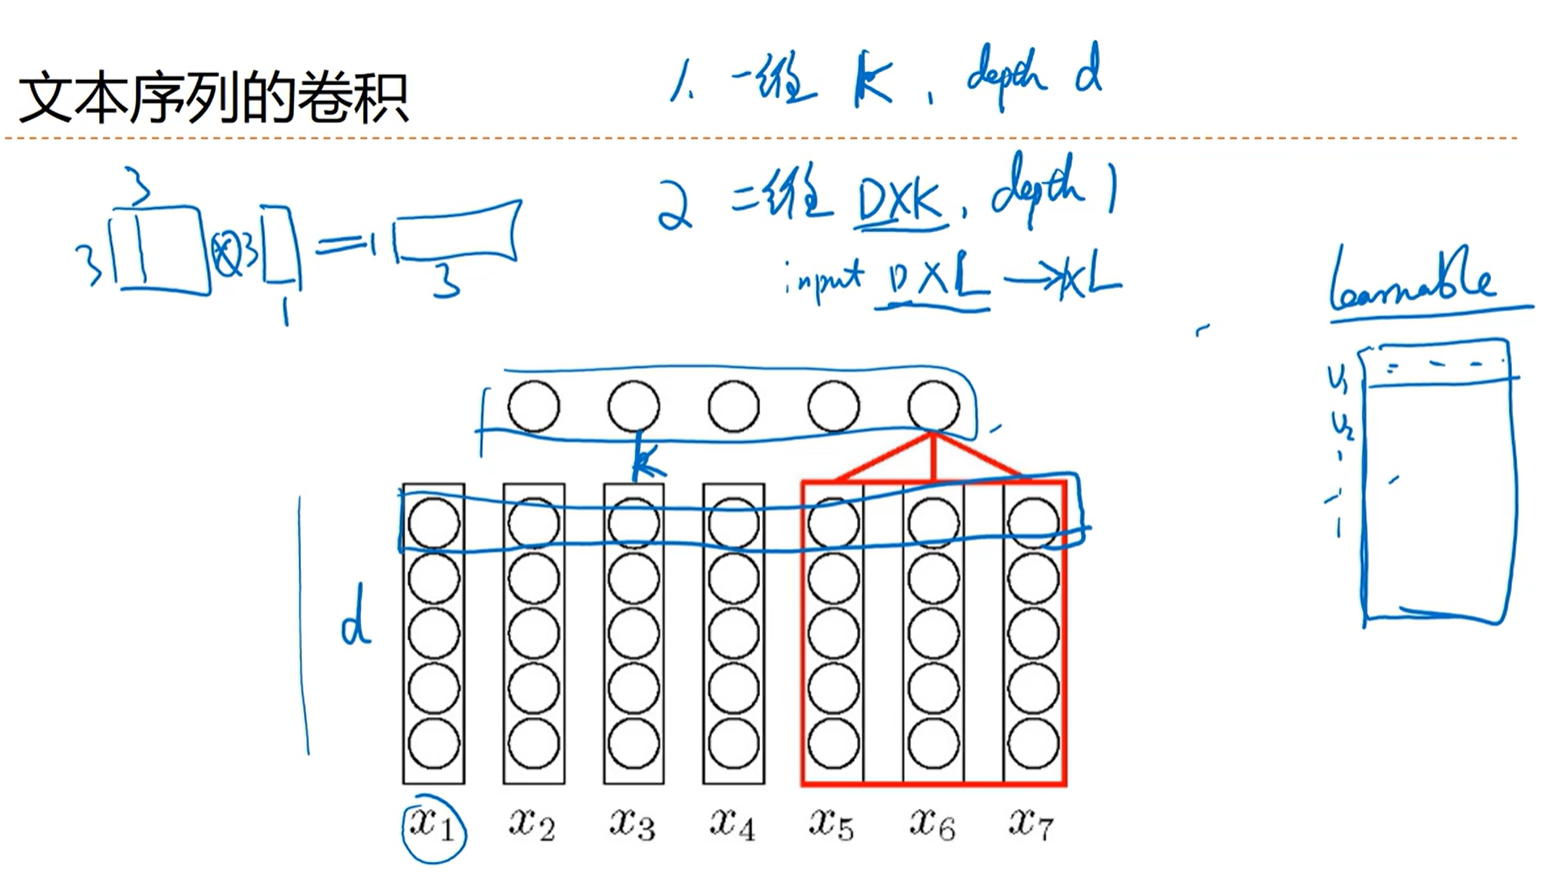 文本序列的卷积
1. 一维 K, depth d
2 二维 D×K, depth 1
input D×L → 1×L
3
3 ⊗ 3 = 1
1 3
learnable
v1
v2
K
d
x1 x2 x3 x4 x5 x6 x7